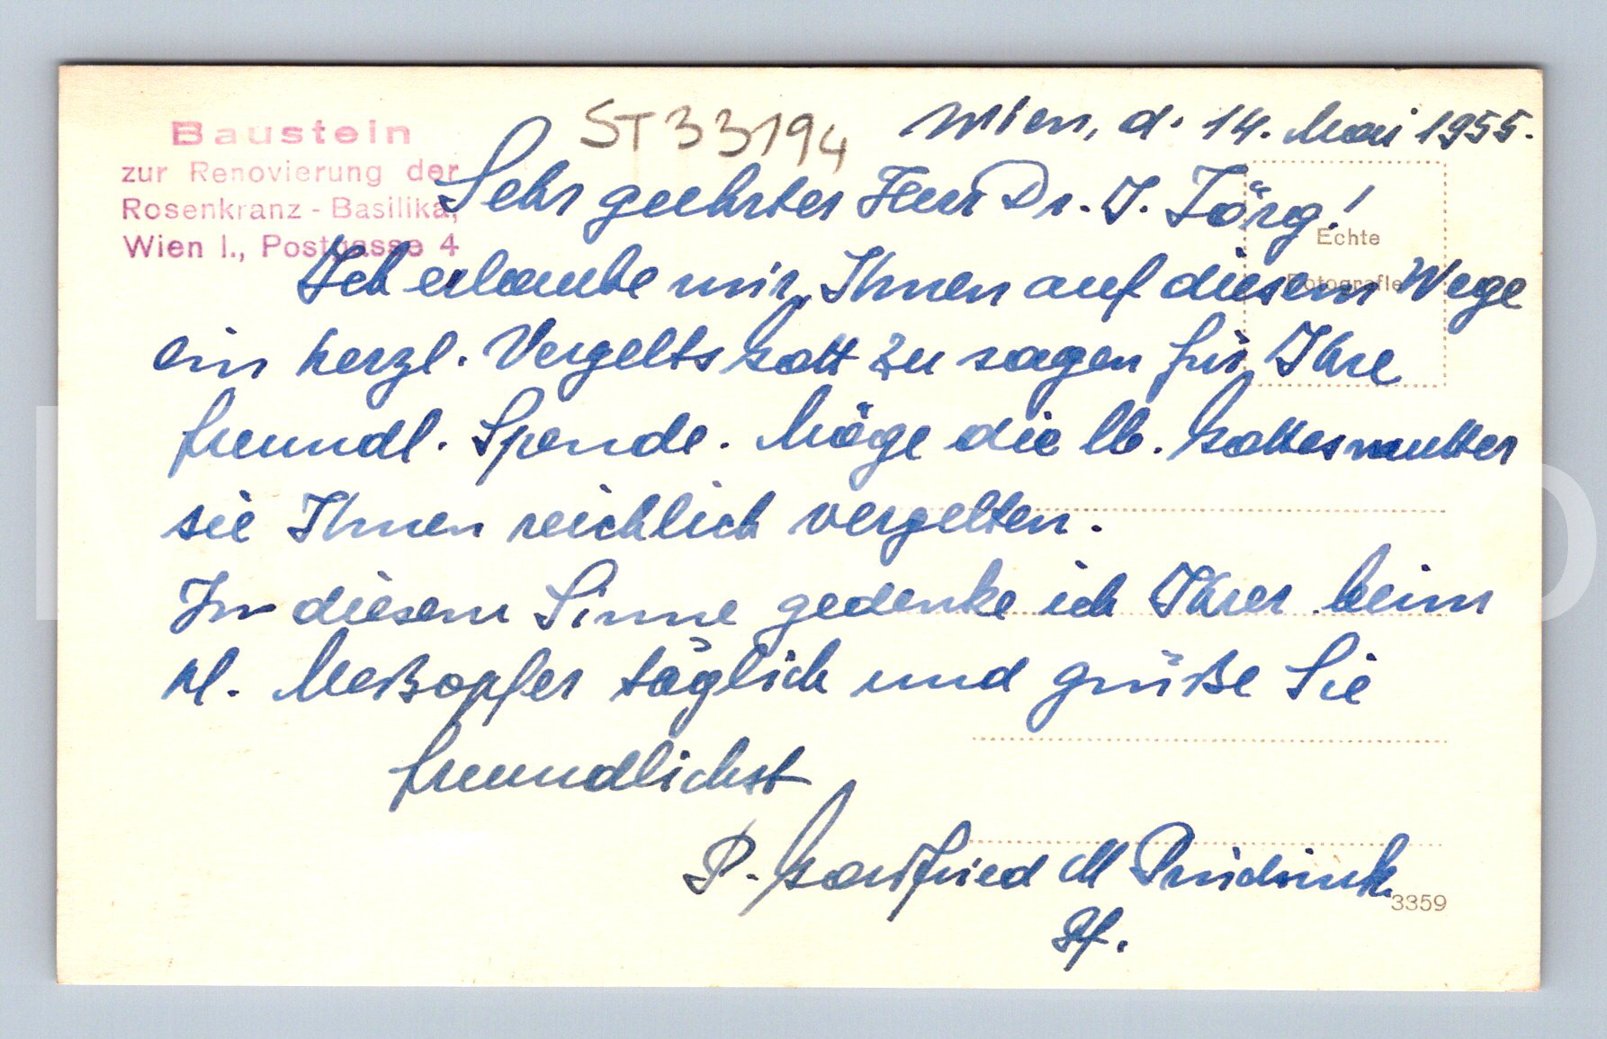 Baustein
zur Renovierung der
Rosenkranz - Basilika,
Wien I., Postgasse 4
ST 33194
Wien, d. 14. Mai 1955.
Sehr geehrter Herr Dr. J. Jörg!
Echte
Fotografie
Ich erlaube mir, Ihnen auf diesem Wege
ein herzl. Vergelts Gott zu sagen für Ihre
freundl. Spende. Möge die lb. Gottesmutter
sie Ihnen reichlich vergelten.
In diesem Sinne gedenke ich Ihrer beim
hl. Meßopfer täglich und grüße Sie
freundlichst
P. M
Pf.
3359